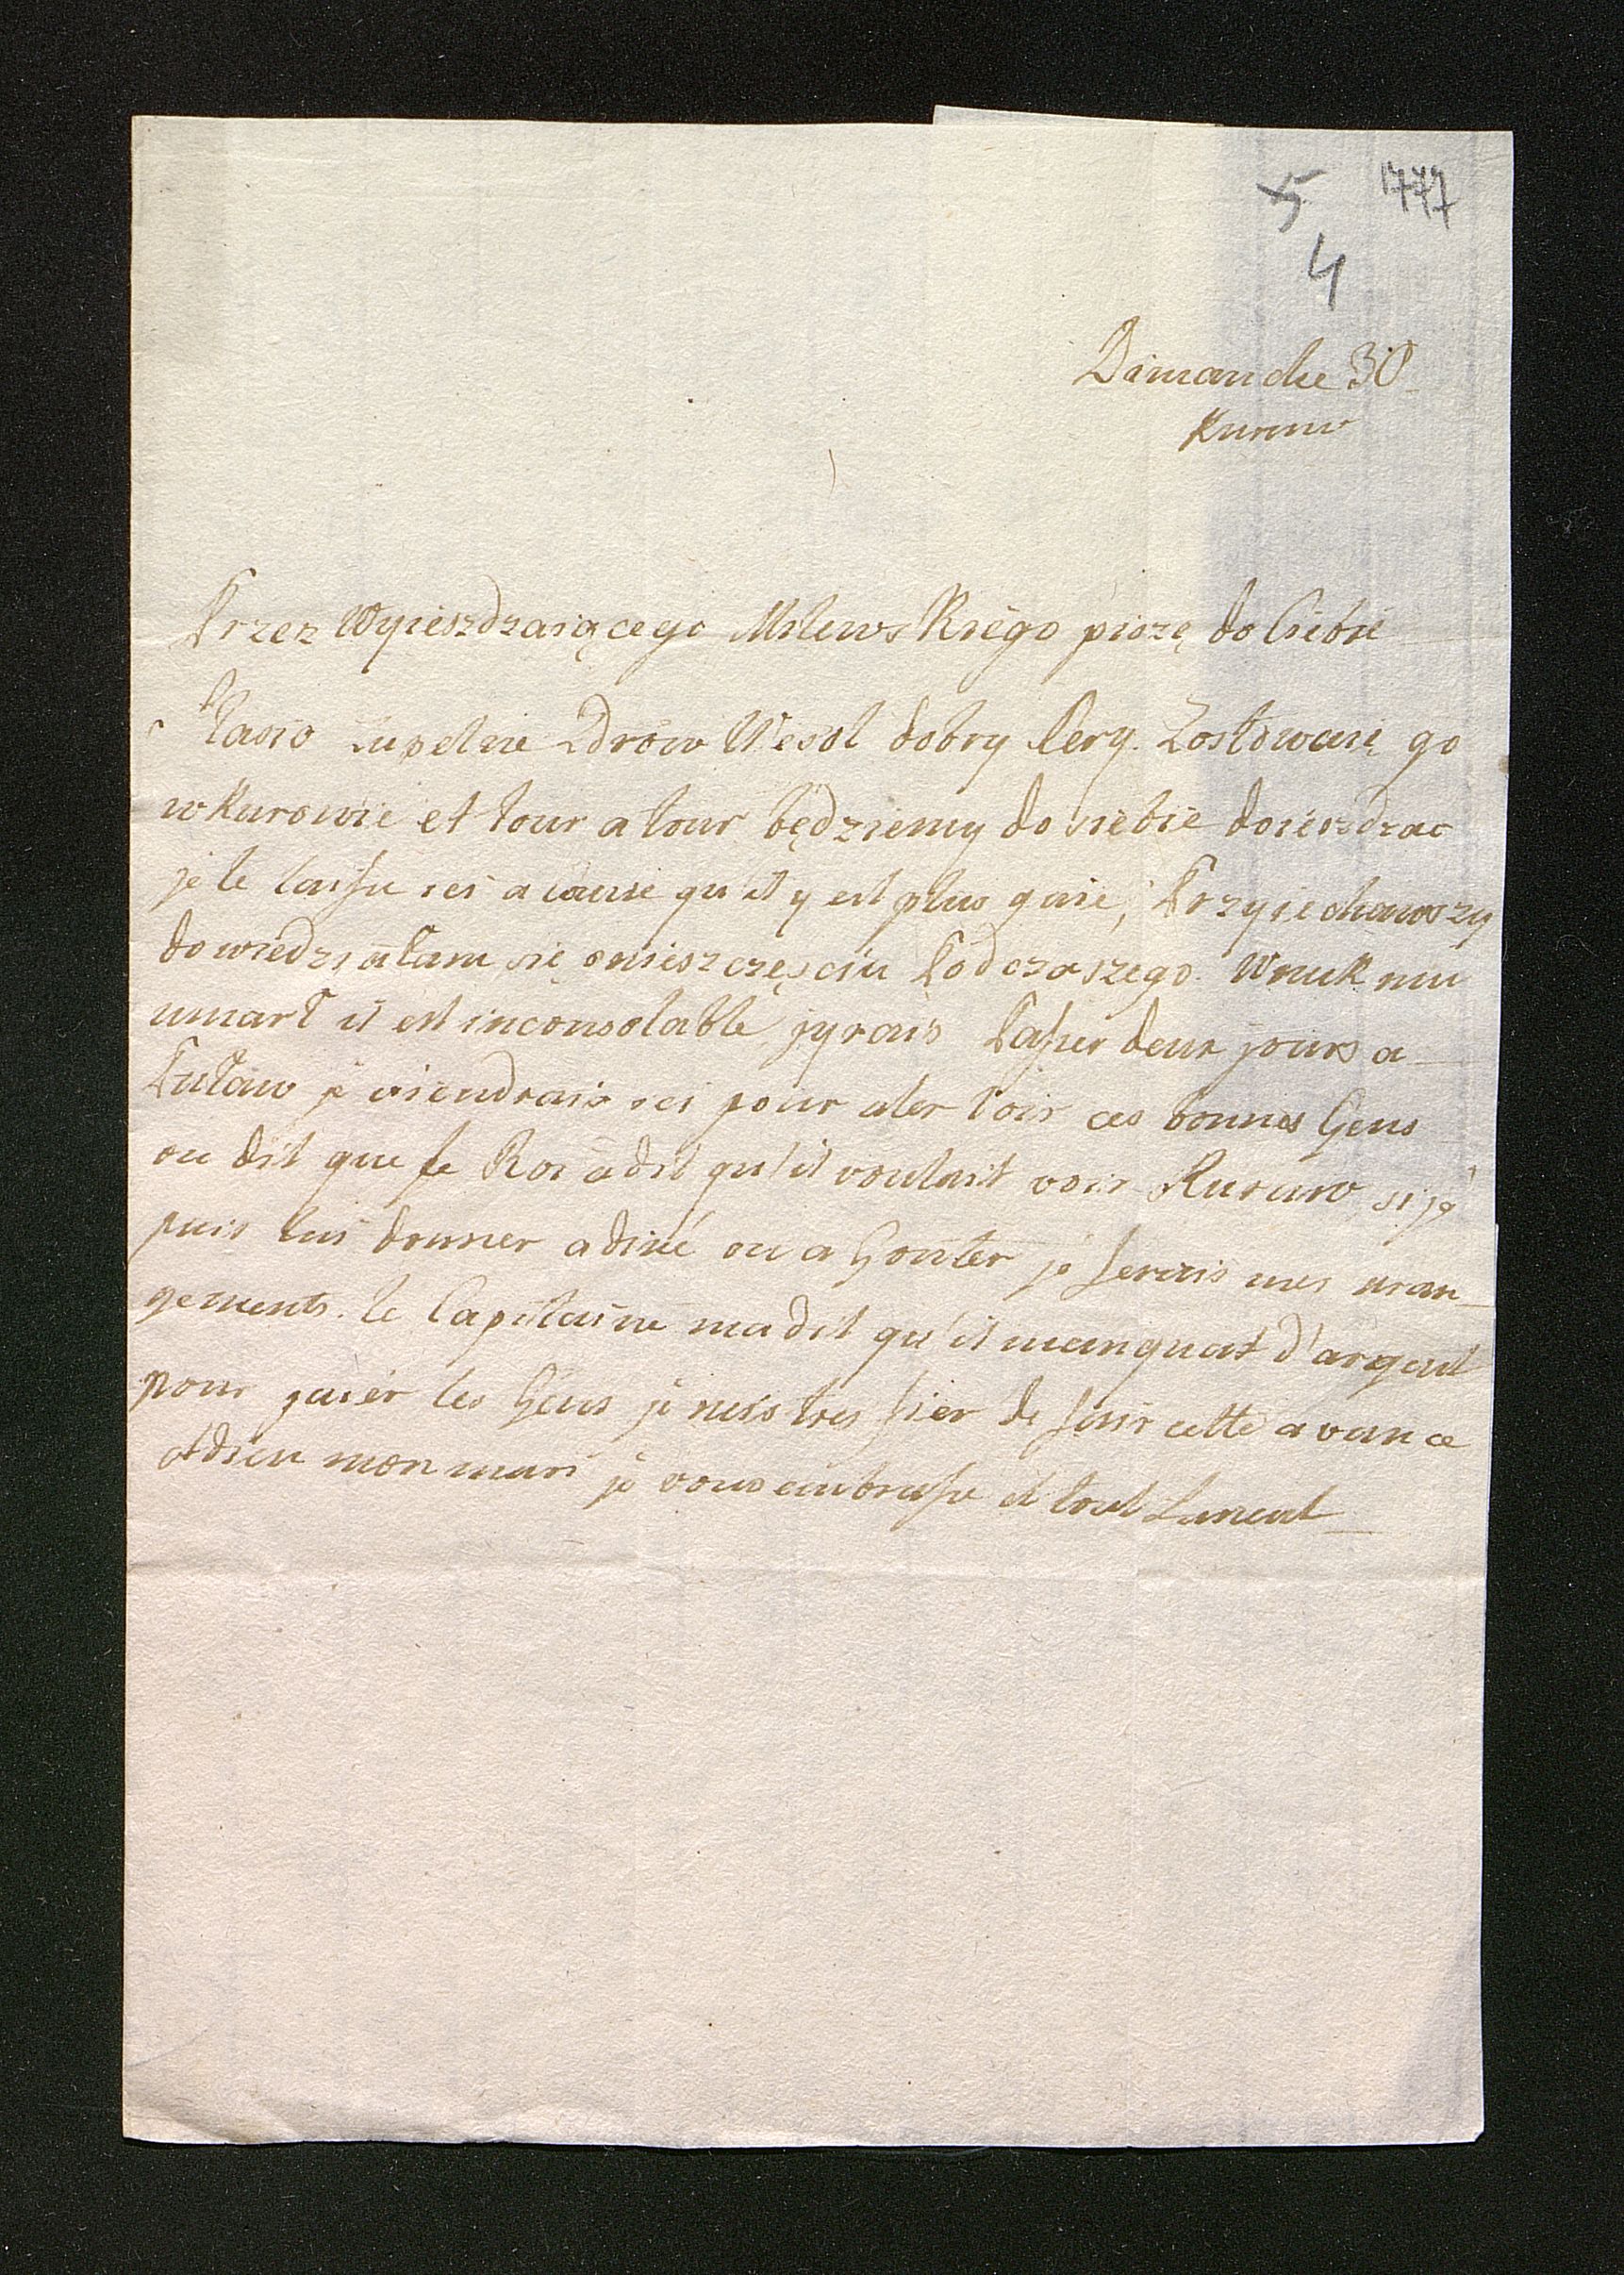 5 1777
4
Dimanche 30
Kurow
Przez Wyieszdzaiącego Milewskiego piszę do Ciebie
Stasio zupelnie Zdrow Wesol dobry Cery. Zostowaię go
w Kurowie et tour a tour będziemy do siebie doieszdzac
je le laisse ici a cause qu'il y est plus gaie, Przyiechawszy
dowiedziałam się onieszczęsciu Podczaszego. Wnuk mu
umarł il est inconsolable jyrais Passer deux jours a
Puław je viendrais ici pour aler voir ces bonnes Gens
on dit que le Roi a dit qu'il voulait voir Kurow, si je
puis lui donner a diné ou a Gouter je ferais mes aran-
gements. le Capitaine ma dit qu'il manquat d'argent
pour paier les Gens je suis tres fier de fair cette avance
Adieu mon mari je vous embrasse et tout